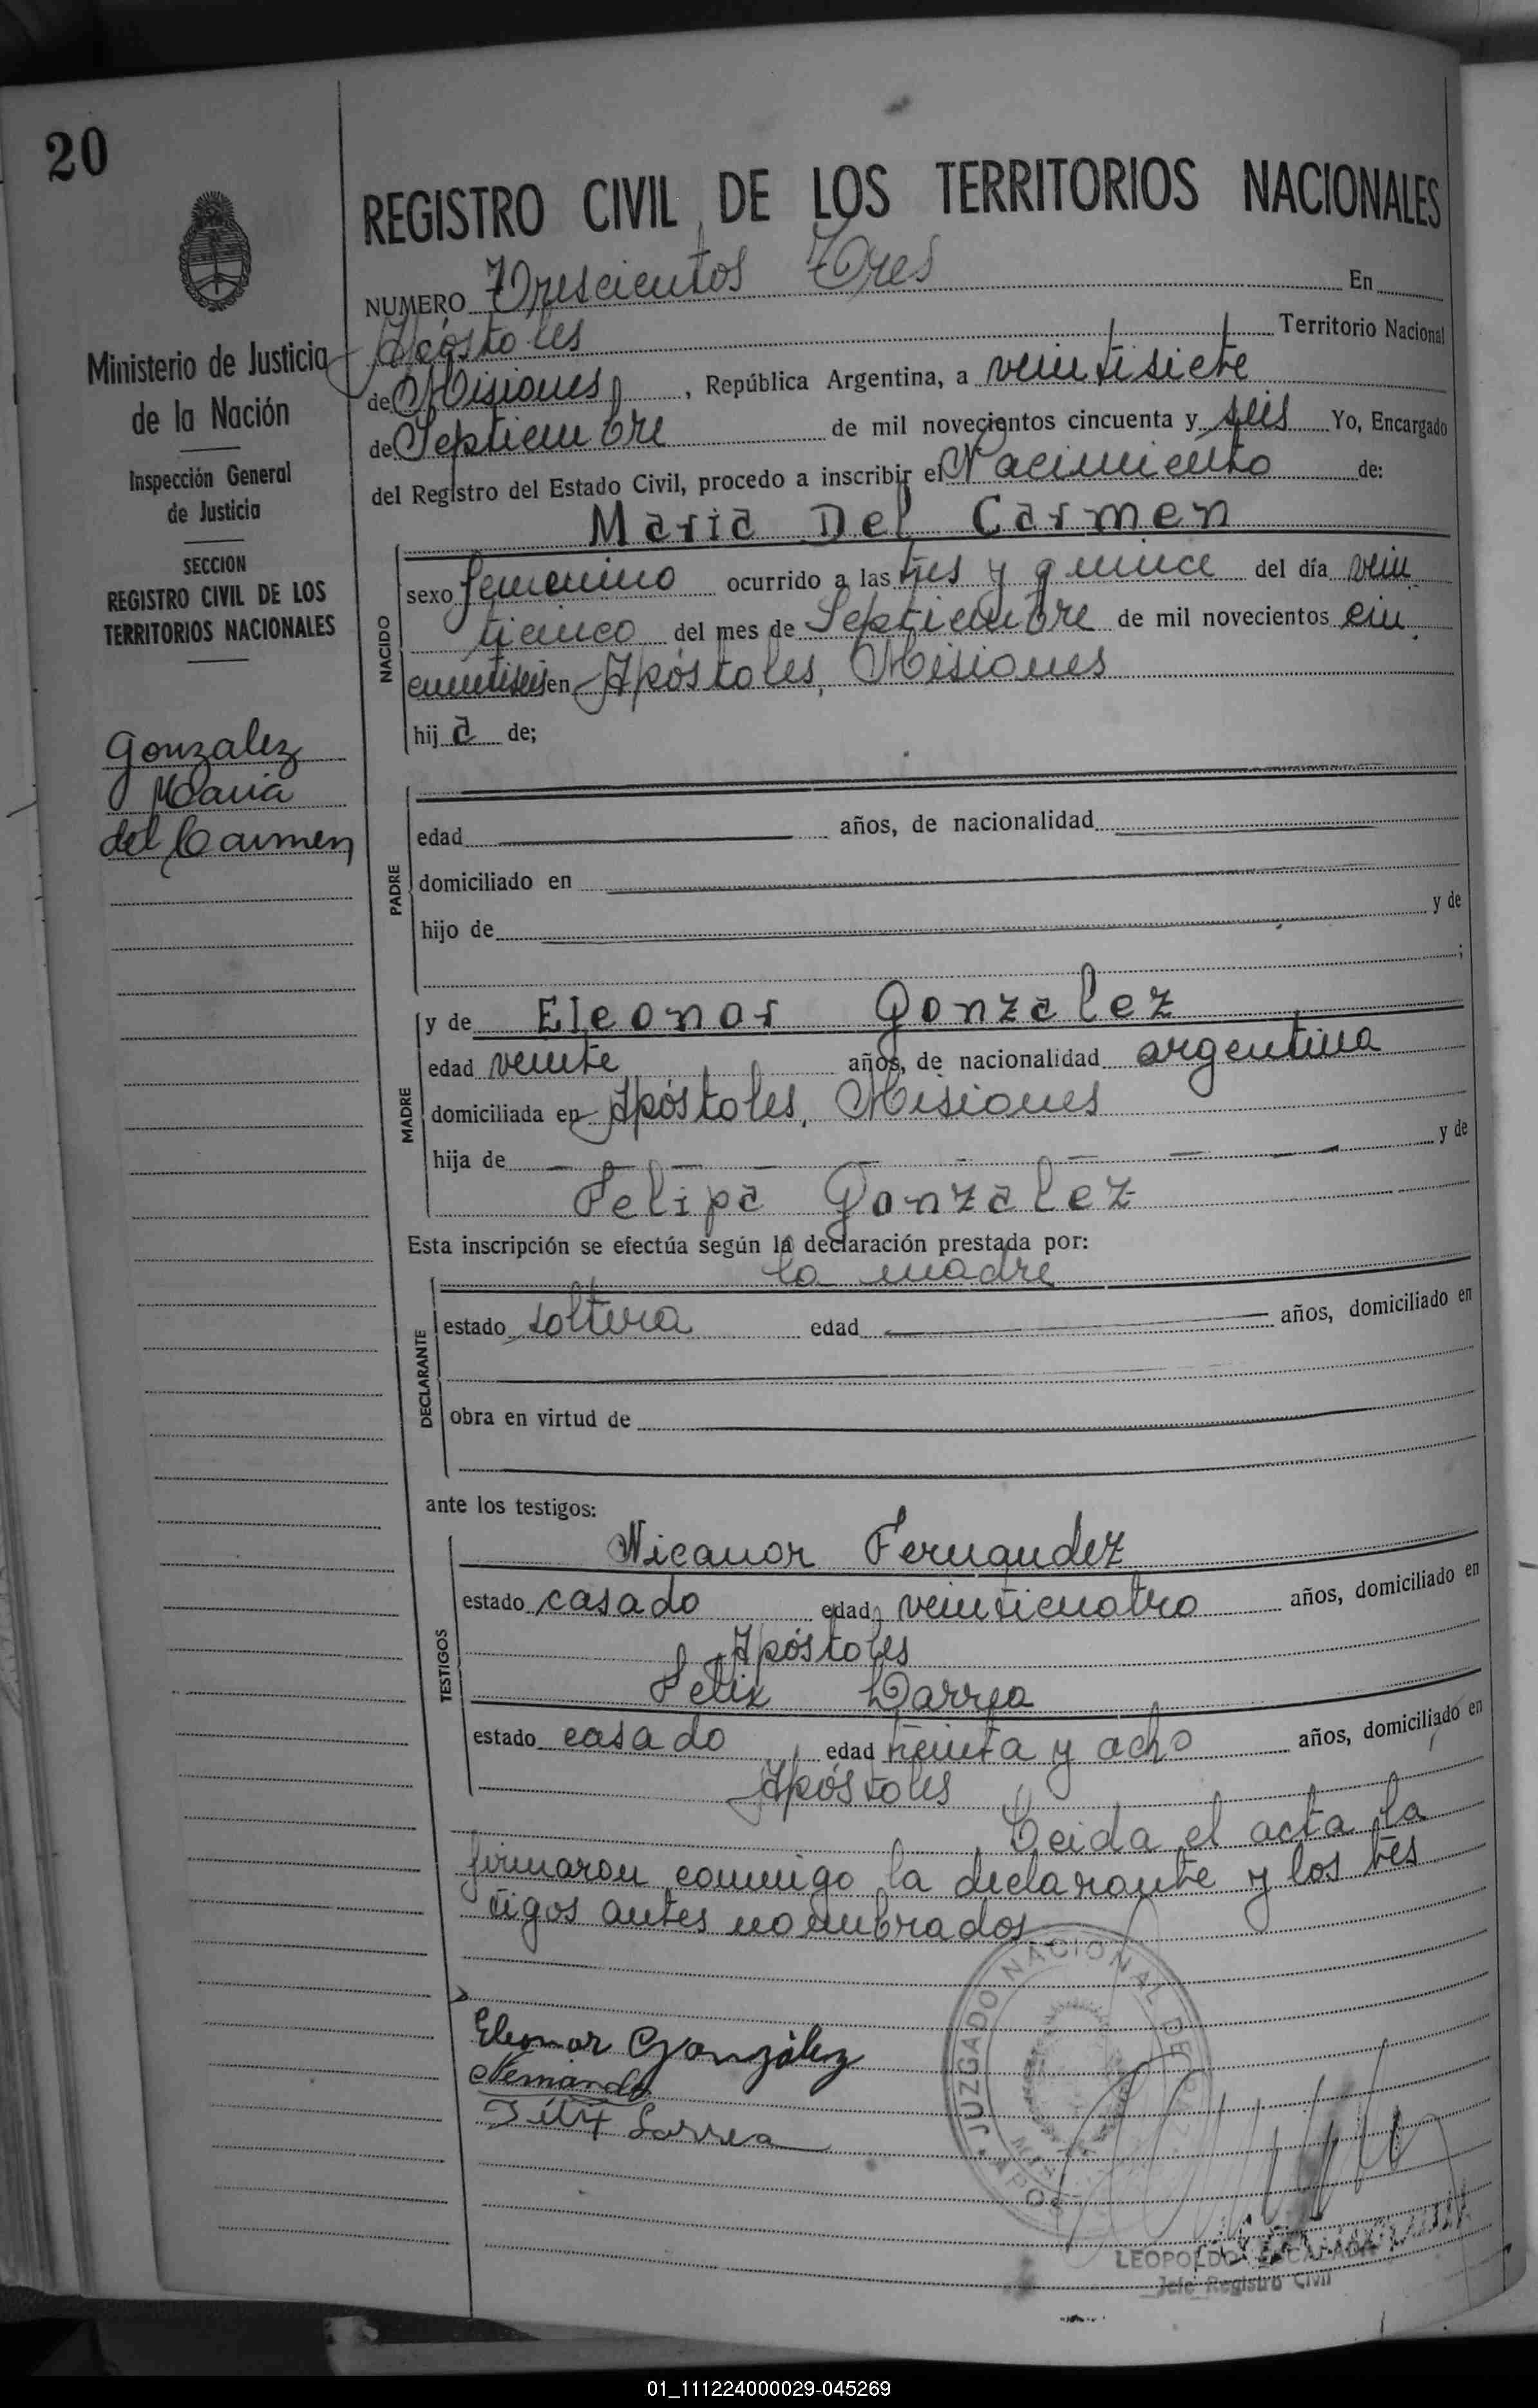 20
REGISTRO CIVIL DE LOS TERRITORIOS NACIONALES
NUMERO Trescientos Tres En
Apóstoles Territorio Nacional
de Misiones, República Argentina, a veintisiete
de Septiembre de mil novecientos cincuenta y seis Yo, Encargado
del Registro del Estado Civil, procedo a inscribir el Nacimiento de:
Ministerio de Justicia
de la Nación
Inspección General
de Justicia
SECCION
REGISTRO CIVIL DE LOS
TERRITORIOS NACIONALES
Gonzalez
Maria
del Carmen
NACIDO
Maria Del Carmen
sexo femenino ocurrido a las tres y quince del día vein
ticinco del mes de Septiembre de mil novecientos cin
cuentiseis en Apóstoles, Misiones
hij a de;
PADRE
edad años, de nacionalidad
domiciliado en
hijo de y de
;
MADRE
y de Eleonor Gonzalez
edad veinte años, de nacionalidad argentina
domiciliada en Apóstoles, Misiones
hija de y de
Felipa Gonzalez
Esta inscripción se efectúa según la declaración prestada por:
DECLARANTE
la madre
estado soltera edad años, domiciliado en
obra en virtud de
ante los testigos:
TESTIGOS
Nicanor Fernandez
estado casado edad veinticuatro años, domiciliado en
Apóstoles
Felix Larrea
estado casado edad treinta y ocho años, domiciliado en
Apóstoles
Leida el acta la
firmaron conmigo la declarante y los tes
tigos antes nombrados.
Eleonor González
Felix Larrea
JUZGADO NACIONAL DE PAZ
LEOPOLDO
Jefe Registro Civil
01_111224000029-045269